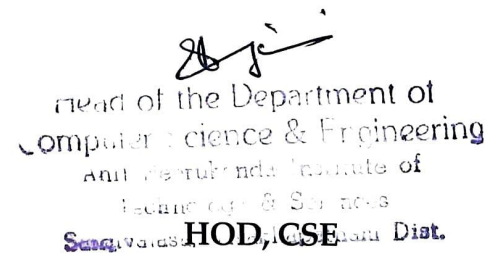 Head of the Department of
Computer Science & Engineering
Anil Neerukonda Institute of
Technology & Sciences
HOD, CSE Dist.